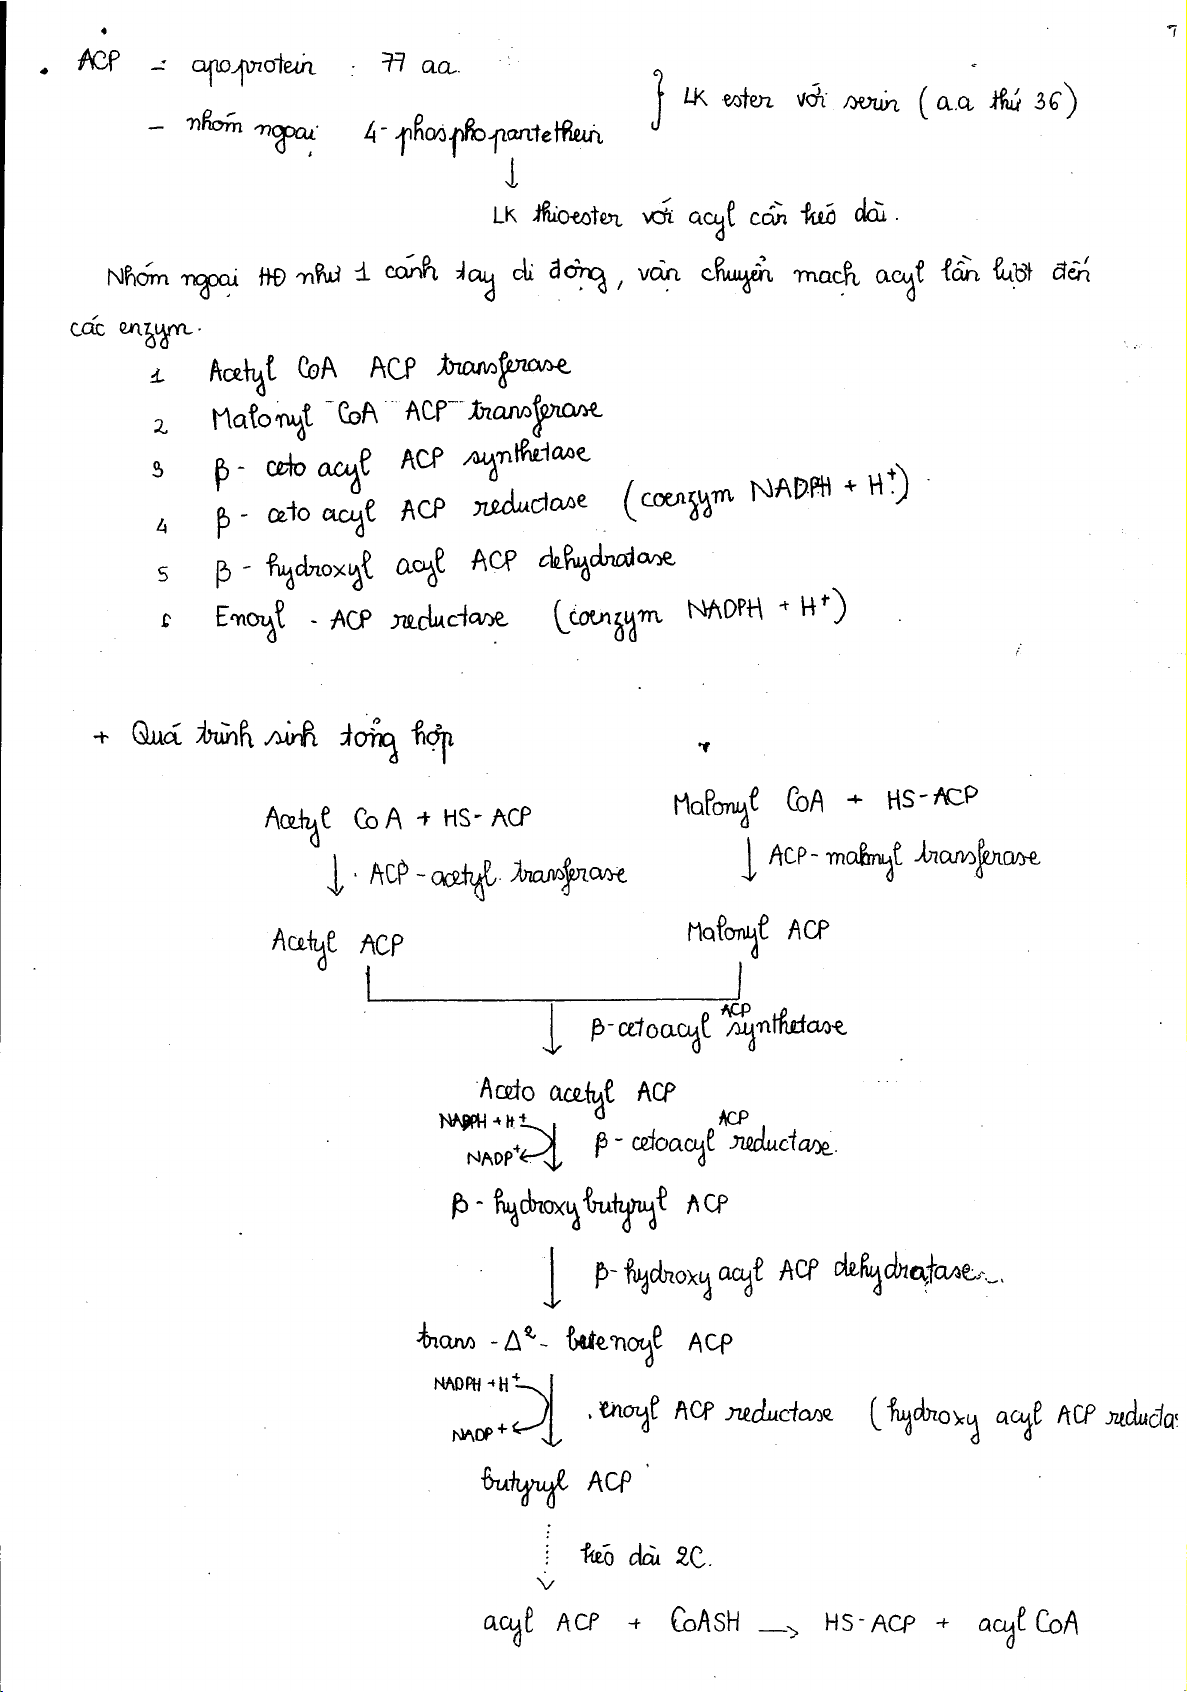 • ACP - apoprotein : 77 aa.
- nhóm ngoại 4-phosphopantethein
} LK ester với serin (a.a thứ 36)
↓
LK thioester với acyl cần kéo dài.
Nhóm ngoại HĐ như 1 cánh tay di động, vận chuyển mạch acyl lần lượt đến
các enzym.
1 Acetyl CoA ACP transferase
2 Malonyl CoA ACP transferase
3 β - ceto acyl ACP synthetase
4 β - ceto acyl ACP reductase (coenzym NADPH + H⁺)
5 β - hydroxyl acyl ACP dehydratase
6 Enoyl - ACP reductase (coenzym NADPH + H⁺)
+ Quá trình sinh tổng hợp
Acetyl CoA + HS-ACP
Malonyl CoA + HS-ACP
↓ ACP-acetyl transferase
↓ ACP-malonyl transferase
Acetyl ACP
Malonyl ACP
↓ β-cetoacyl ACP synthetase
Aceto acetyl ACP
NADPH + H⁺
NADP⁺
↓ β - cetoacyl ACP reductase.
β - hydroxy butyryl ACP
↓ β-hydroxy acyl ACP dehydratase
trans - Δ² - butenoyl ACP
NADPH + H⁺
NADP⁺
↓ enoyl ACP reductase (hydroxy acyl ACP reducta
butyryl ACP
kéo dài 2C.
acyl ACP + CoASH → HS-ACP + acyl CoA